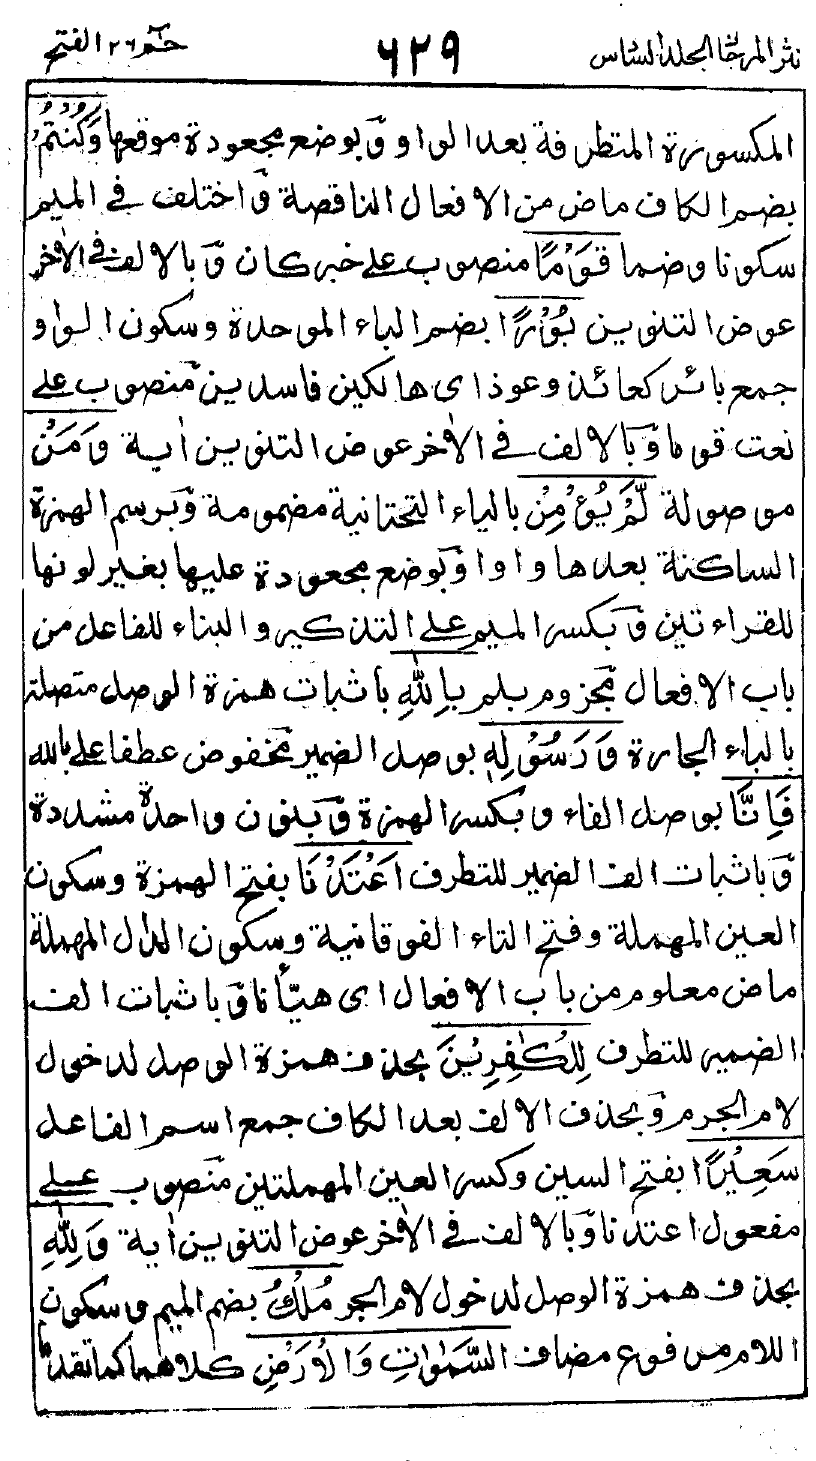 نثر المرجان المجلد السادس ٦٢٩ حٰم ٢٦ الفتح
المكسورة المتطرفة بعد الواو وَبوضع مجعودة موقعها وَكُنْتُمْ
بضم الكاف ماض من الافعال الناقصة وَاختلف في الميم
سكونا وضما قَوْمًا منصوب على خبر كان وَبالالف في الاٰخر
عوض التنوين بُوْرًا بضم الباء الموحدة وسكون الواو
جمع بائر كعائذ وعوذ اى هالكين فاسدين مَنصوب على
نعت قوما وَبالالف في الاٰخر عوض التنوين اٰية وَمَنْ
موصولة لَّمْ يُؤْمِنْ بالياء التحتانية مضمومة وَبرسم الهمزة
الساكنة بعدها واوا وَبوضع مجعودة عليها بغير لونها
للقراءتين وَبكسر الميم على التذكير والبناء للفاعل من
باب الافعال مَجزوم بلم بِاللّٰهِ باثبات همزة الوصل متصلة
بالباء الجارة وَرَسُوْلِهٖ بوصل الضمير مَخفوض عطفا على بالله
فَاِنَّا بوصل الفاء وبكسر الهمزة وَبنون واحدة مشددة
وَباثبات الف الضمير للتطرف اَعْتَدْنَا بفتح الهمزة وسكون
العين المهملة وفتح التاء الفوقانية وسكون الدال المهملة
ماض معلوم من باب الافعال اى هيّأنا وَباثبات الف
الضمير للتطرف لِلْكٰفِرِيْنَ بحذف همزة الوصل لدخول
لام الجر م وَبحذف الالف بعد الكاف جمع اسم الفاعل
سَعِيْرًا بفتح السين وكسر العين المهملتين مَنصوب على
مفعول اعتدنا وَبالالف في الاٰخر عوض التنوين اٰية وَلِلّٰهِ
بحذف همزة الوصل لدخول لام الجر مُلْكُ بضم الميم وسكون
اللام مرفوع مضاف السَّمٰوٰتِ وَالْاَرْضِ كلاهما كما تقدم